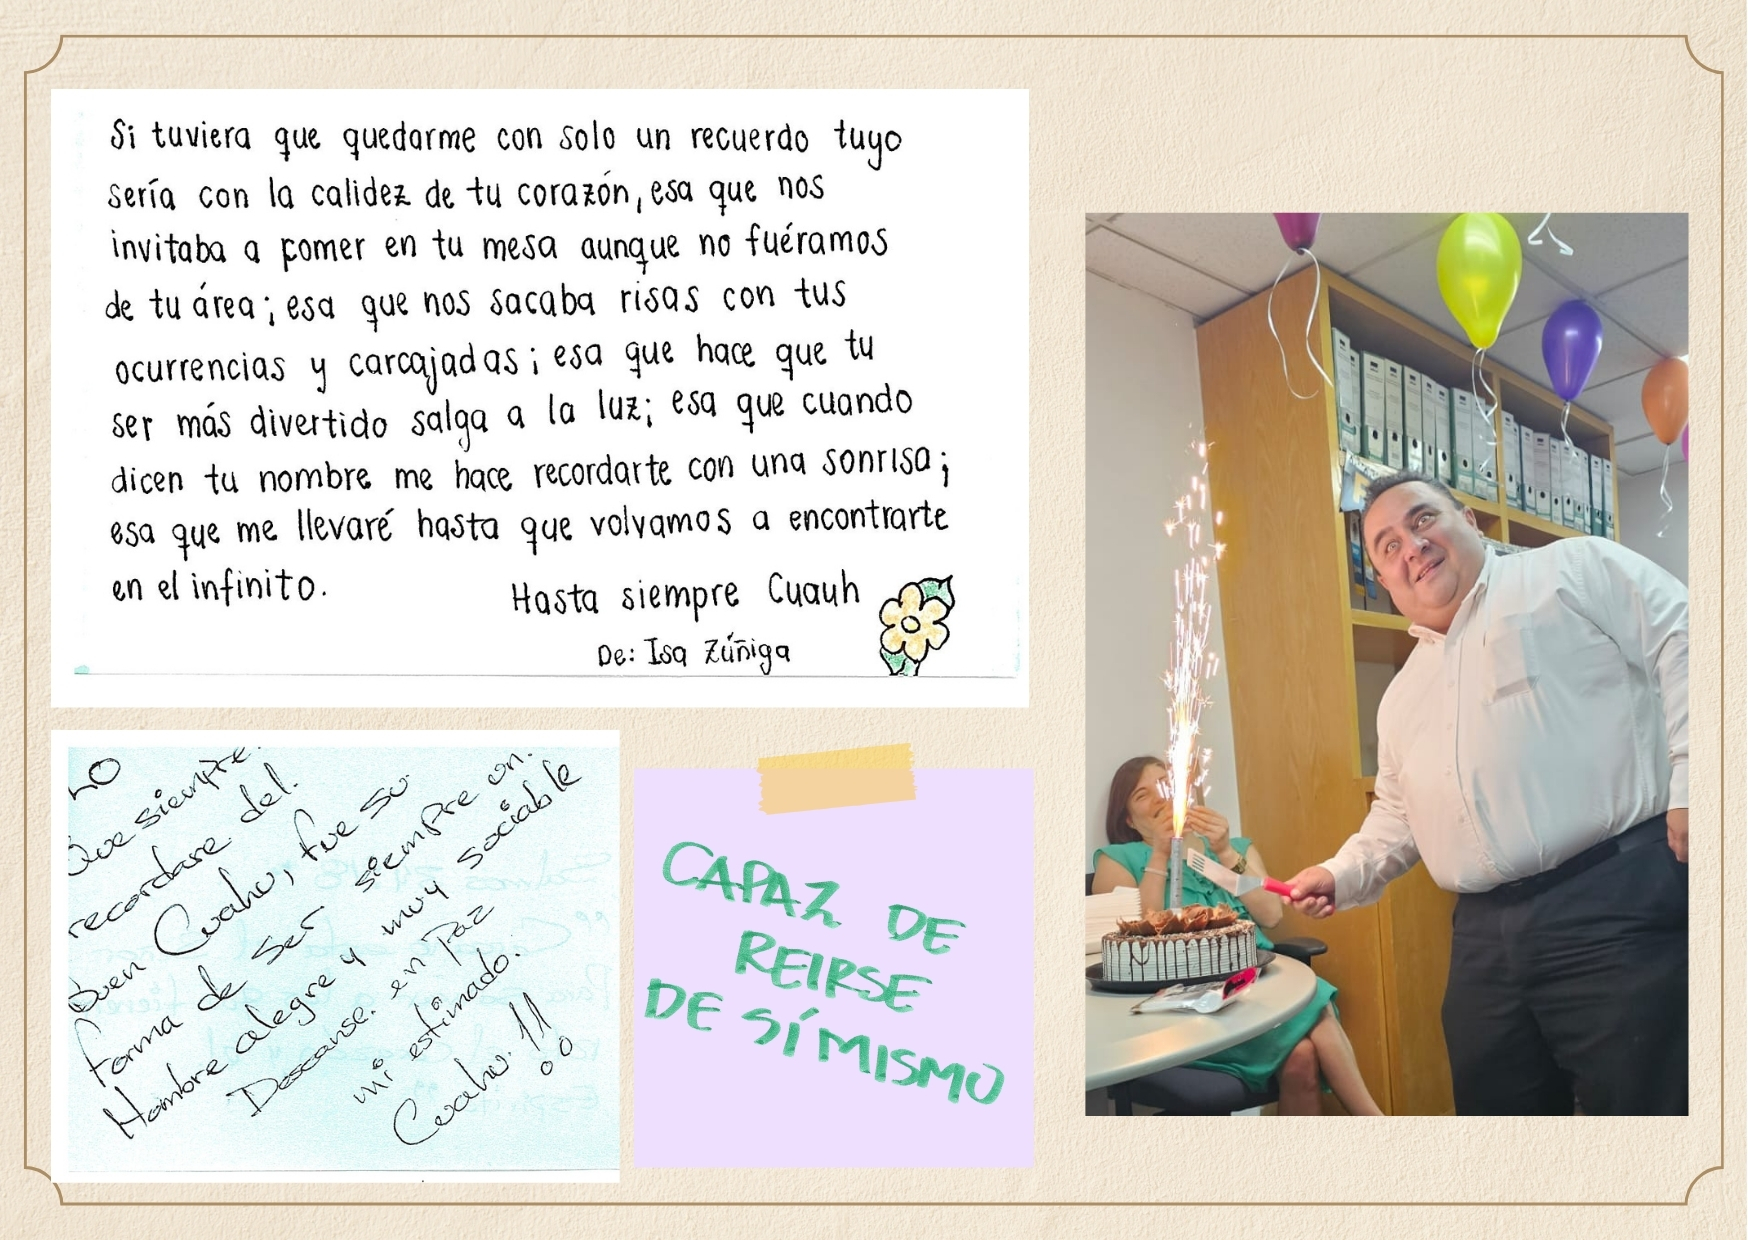 Si tuviera que quedarme con solo un recuerdo tuyo
sería con la calidez de tu corazón, esa que nos
invitaba a comer en tu mesa aunque no fuéramos
de tu área; esa que nos sacaba risas con tus
ocurrencias y carcajadas; esa que hace que tu
ser más divertido salga a la luz; esa que cuando
dicen tu nombre me hace recordarte con una sonrisa;
esa que me llevaré hasta que volvamos a encontrarte
en el infinito.
Hasta siempre Cuauh
De: Isa Zúñiga
LO
Que siempre.
recordare del.
Buen Cuahu, fue su
forma de ser siempre un.
Hombre alegre y muy sociable
Descanse. en Paz
mi estimado.
Cuahu. !!
CAPAZ DE
REIRSE
DE SÍ MISMO